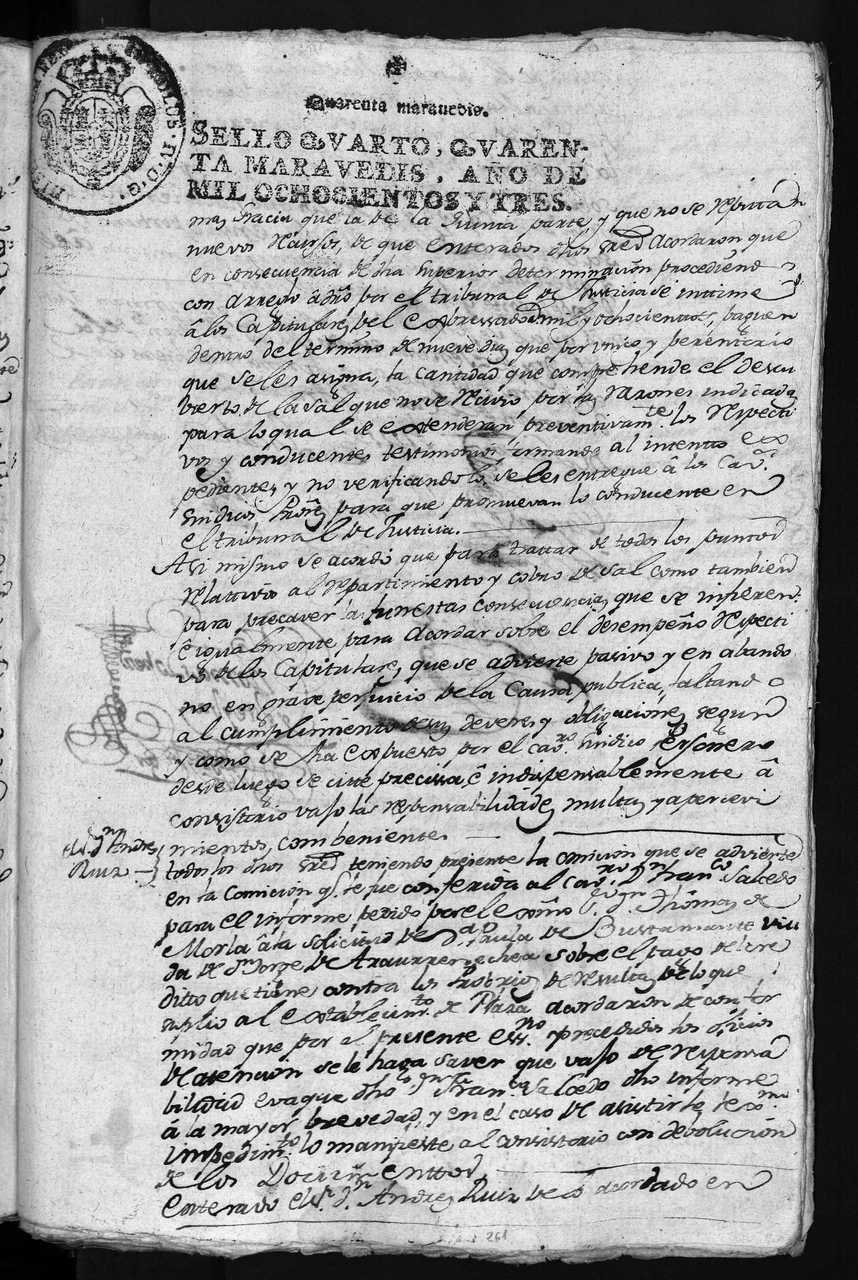 Quarenta marauedis.
SELLO QVARTO, QVAREN-
TA MARAVEDIS, AÑO DE
MIL OCHOCIENTOS Y TRES.
mas gracia que la de la Junta parte, y que no se repitan
nuevos de que enterados dhos Sres acordaron que
en consecuencia de dha Superior determinacion procediendo
con arreglo a dro por el tribunal de Justicia se intime
â los Capitulares del expressado mil y ochocientos, paguen
dentro del termino de nueve dias que por unico y perentorio
que se les asigna, la cantidad que comprehende el descu
bierto de la sal que no se por las razones indicadas
para lo qual se extenderan preventivamte. los respecti
vos y conducentes testimonios formando al intento ex
pedientes y no verificandolo se les entregue â los Cavs.
Sindicos para que promuevan lo conducente en
el tribunal de Justicia.
Asi mismo se acordó que para tratar de todos los puntos
relativos al repartimiento y cobro de sal como tambien
para precaver las funestas consecuencias que se infieren
ê igualmente para acordar sobre el desempeño respecti
vo de los Capitulares, que se advierte pasivo y en abando
no en grave perjuicio de la Causa publica, faltando
al cumplimiento de sus deveres y obligaciones segun
y como se ha expuesto por el cavro. Sindico Personero
desde luego se cite precissa, ê indispensablemente â
consistorio vajo las responsabilidades, multas, y apercevi
mientos, combenientes
Dn. Andres
Ruiz
todos los dhos Sres teniendo presente la omicion que se advierte
en la Comicion q. le fue conferida al cavro. Dn. Franco. Salcedo
para el informe pedido por el exmo Sor. Dn. Thomas de
Morla â la solicitud de Da. Paula de Bustamante viu
da de Dn. Jorge de sobre el pago del cre
dito que tiene contra los Proprios de resultas de lo que
suplio al establecimto. de Plaza acordaron de confor
midad que por el presente essno. precedidos los oficios
de atencion se le haga saver que vajo de responsa
bilidad evaque dho Dn. Franco. Salcedo dho informe
â la mayor brevedad, y en el caso de asistirle
impedimto. lo manifieste al consistorio con devolucion
de los Documenttos
Enterado el Sr. Dn. Andres Ruiz de lo acordado en
261